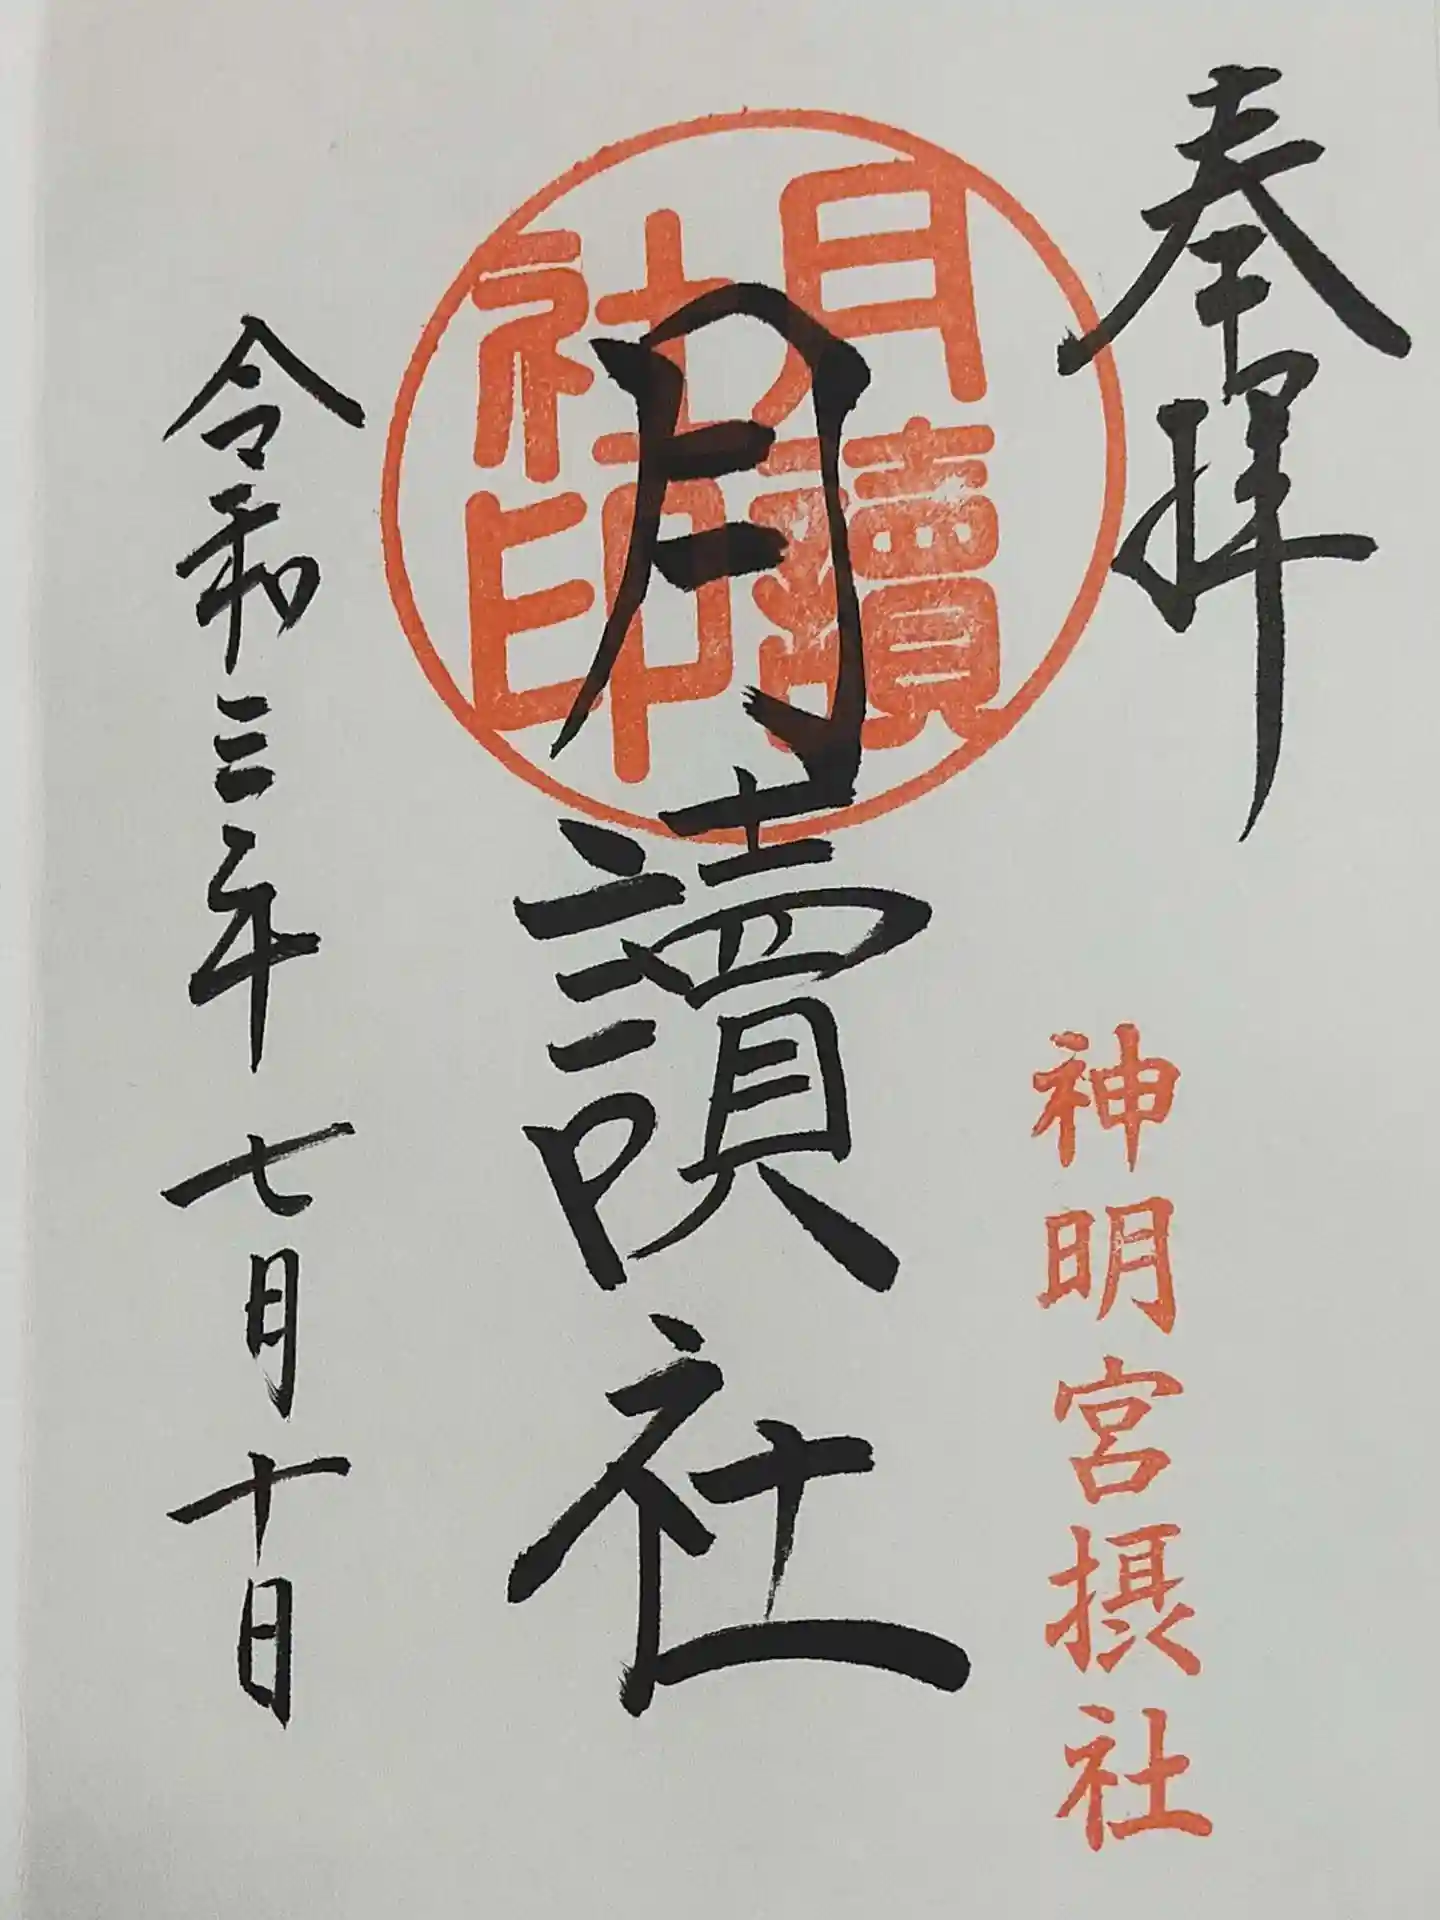 奉拝
神明宮摂社
月讀社印
月讀社
令和三年七月十日